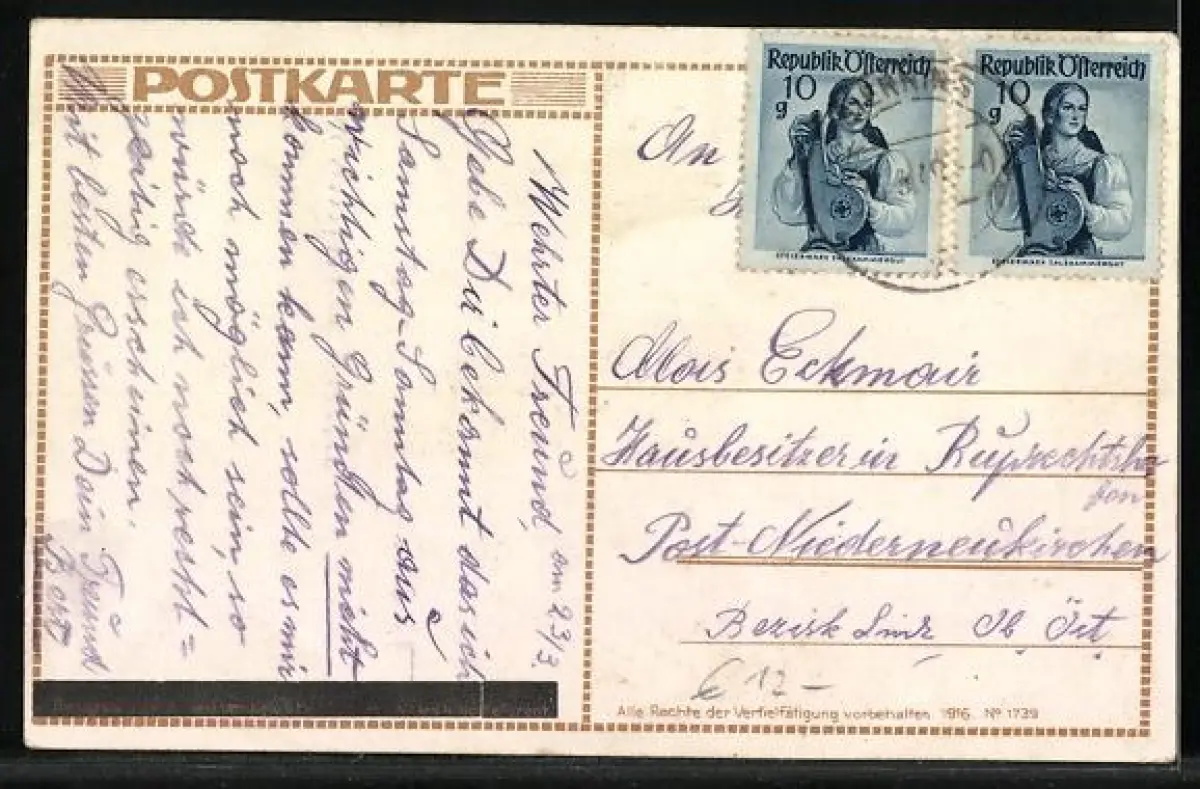 POSTKARTE
Wehrter Freund, am 23/3.
Gebe Dir bekannt das ich
Samstag-Sonntag aus
wichtigen Gründen nicht
kommen kann, sollte es mir
noch möglich sein, so
würde ich noch recht=
zeitig erscheinen.
Mit besten Grüssen Dein Freund
Republik Österreich
10
g
STEIERMARK SALZKAMMERGUT
Republik Österreich
10
g
STEIERMARK SALZKAMMERGUT
An
Alois Eckmair
Hausbesitzer in
Post-Niederneukirchen
Bezirk Linz Ob Öst
€ 12-
Alle Rechte der Verfielfätigung vorbehalten 1916. No 1739